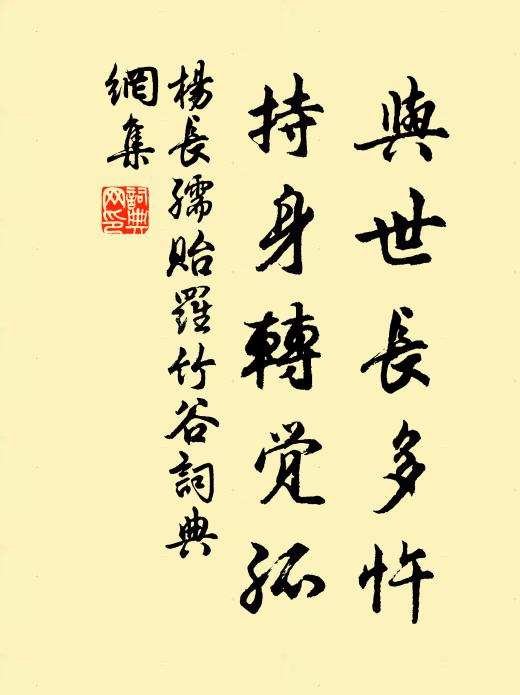 與世長多忤
持身轉覺孤
楊長孺貽羅竹谷詞典
網集
詞典
网印